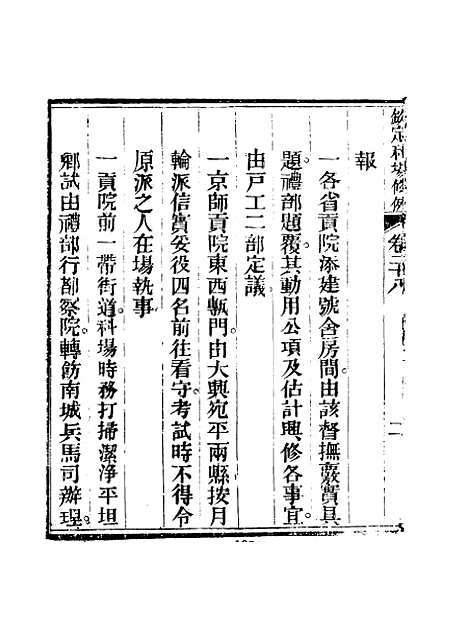 欽定科場條例 卷三十八 二
報
一各省貢院添建號舍房間。由該督撫覈實具
題。禮部題覆。其動用公項及估計興修各事宜。
由戶工二部定議
一京師貢院東西轅門。由大興宛平兩縣按月
輪派信實妥役四名前往看守。考試時不得令
原派之人在場執事
一貢院前一帶街道。科場時務打掃潔淨平坦
鄉試由禮部行都察院。轉飭南城兵馬司辦理。